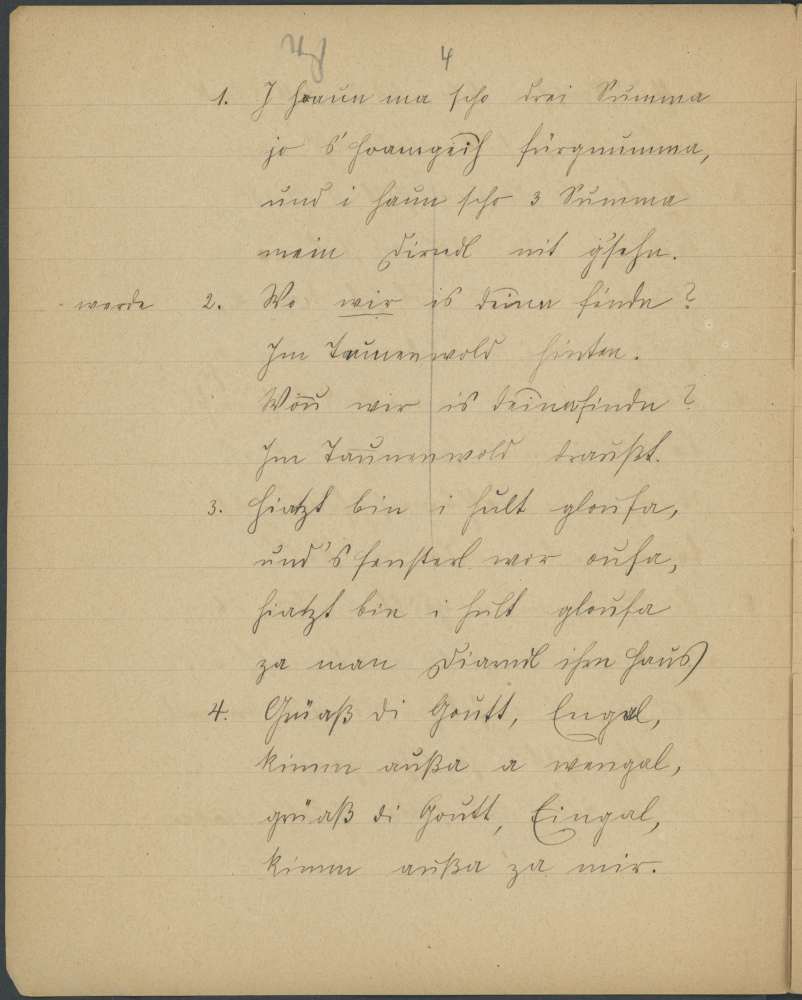 4
1. I haun ma scho drei Summa
jo 's Hoamgeih fürgnumma,
und i haun scho 3 Summa
mein Dirndl nit g'sehn.
werde 2. Wo wir is deina finda?
Im Taunenwold hinten.
Wou wir is deina finda?
Im Taunenwold draußt.
3. Hiatzt bin i hult gloufa,
und 's Fensterl wor oufa,
hiatzt bin i hult gloufa
za man Diarndl ihrn Haus
4. Grüaß di Goutt, Engal,
kimm außa a wengal,
grüaß di Goutt, Eingal,
kimm außa za mir.